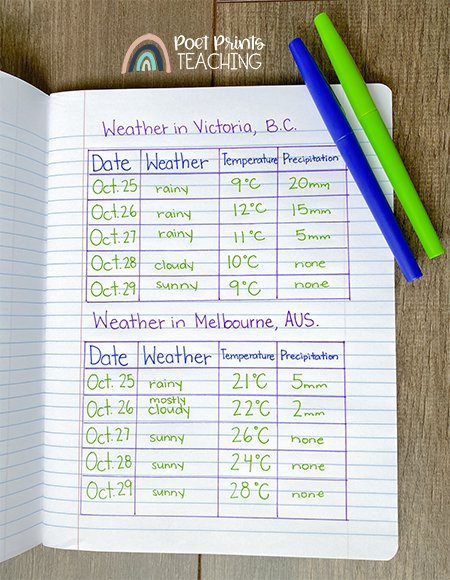 Poet Prints
TEACHING
Weather in Victoria, B.C.
Date Weather Temperature Precipitation
Oct. 25 rainy 9°C 20mm
Oct. 26 rainy 12°C 15mm
Oct. 27 rainy 11°C 5mm
Oct. 28 cloudy 10°C none
Oct. 29 sunny 9°C none
Weather in Melbourne, AUS.
Date Weather Temperature Precipitation
Oct. 25 rainy 21°C 5mm
Oct. 26 mostly cloudy 22°C 2mm
Oct. 27 sunny 26°C none
Oct. 28 sunny 24°C none
Oct. 29 sunny 28°C none